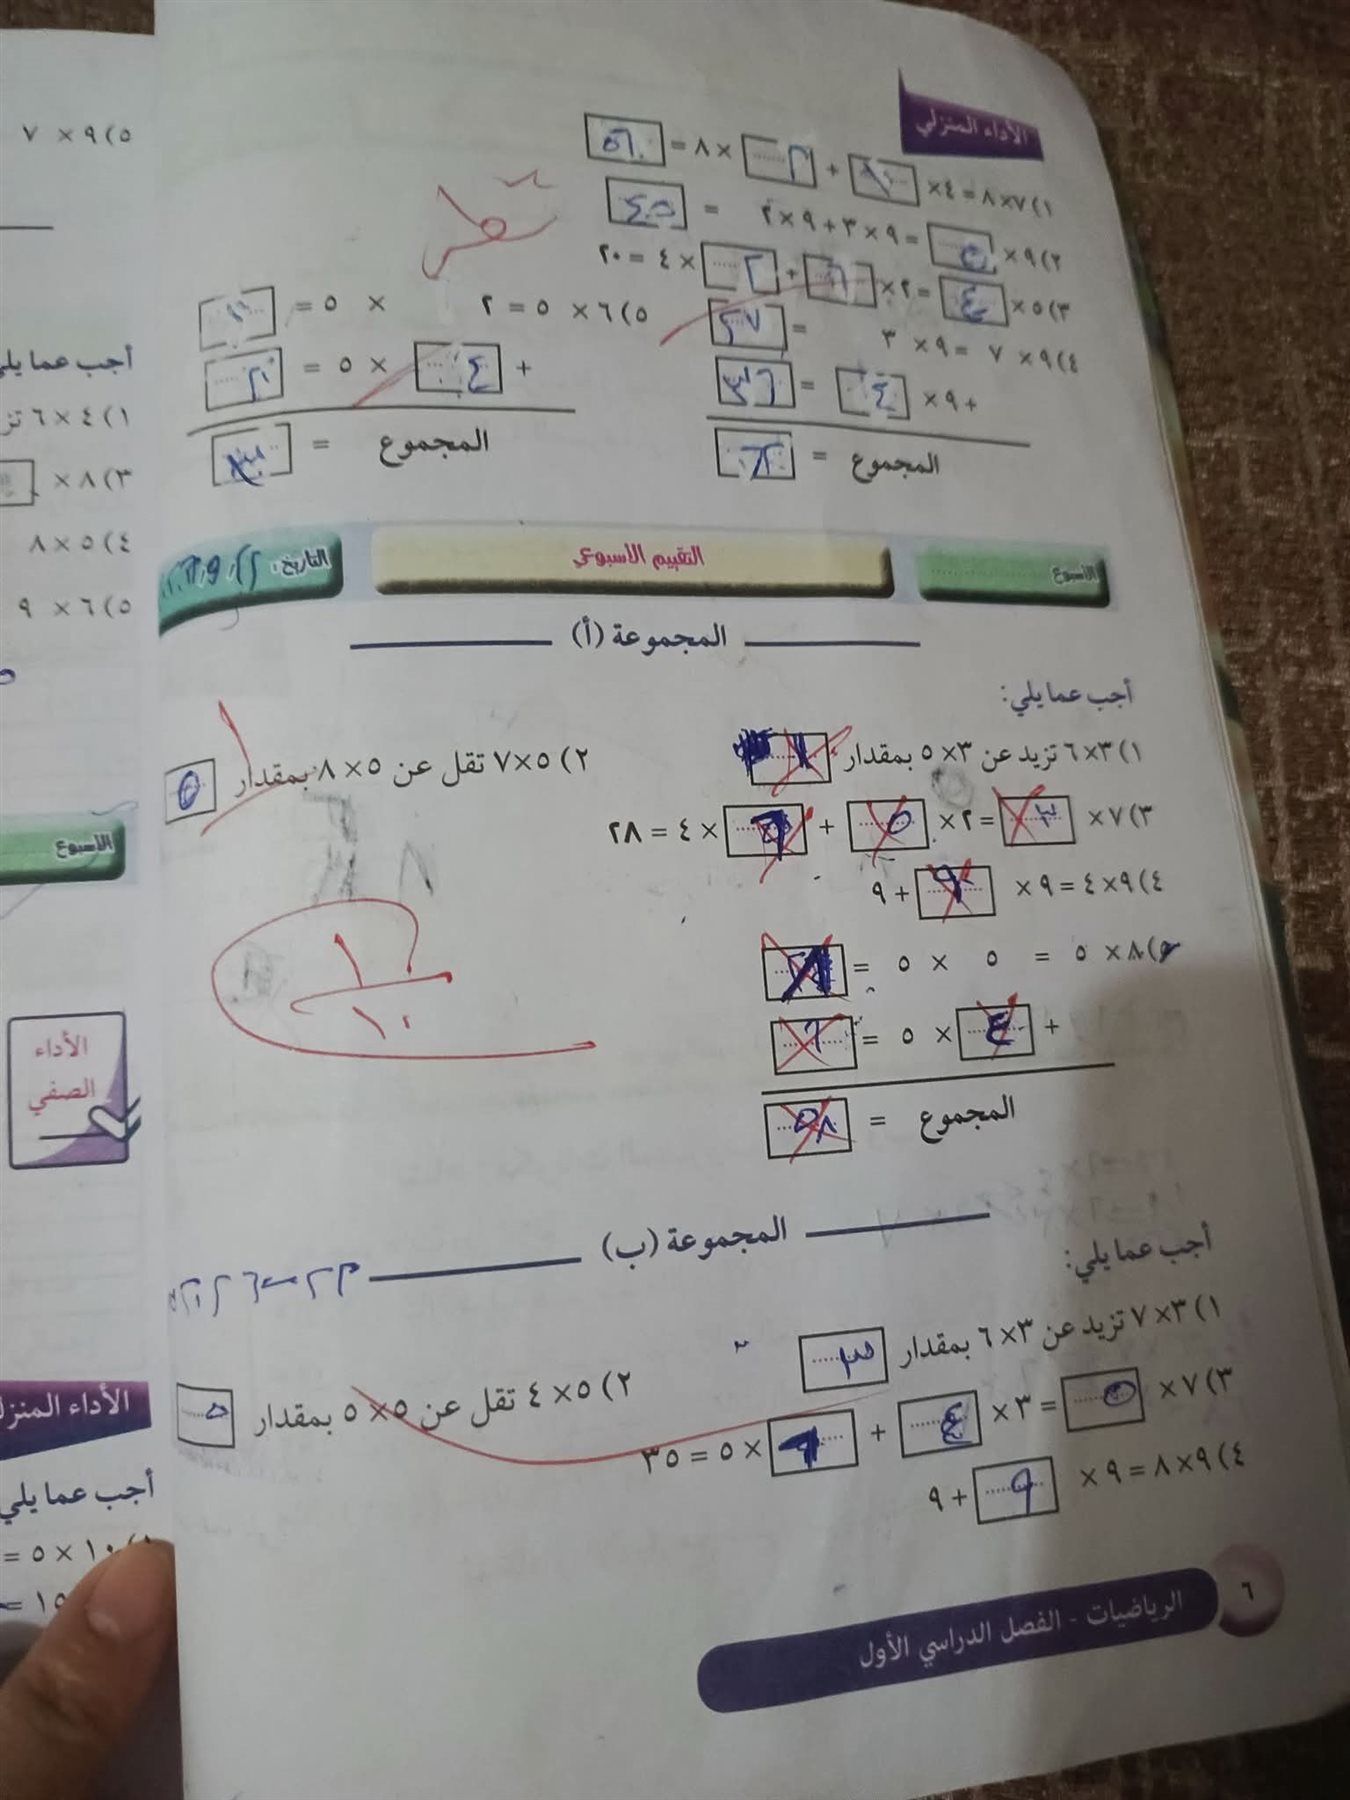 الأداء المنزلي
١) ٧×٨ = ٤× + ×٨ = ٥٦
٢) ٩× ٥ = ٩×٣ + ٩×٢ = ٤٥
٣) ٥× ٤ = ٢× + ×٤ = ٢٠
٤) ٩× ٧ = ٩× ٣ = ٢٧
+ ٩× ٤ = ٣٦
المجموع =
٥) ٦× ٥ = ٢ × ٥ =
+ ٤ × ٥ = ٢٠
المجموع = ٣٠
الأسبوع
التقييم الأسبوعي
التاريخ:
المجموعة (أ)
أجب عما يلي:
١) ٣×٦ تزيد عن ٣×٥ بمقدار
٢) ٥×٧ تقل عن ٥×٨ بمقدار ٥
٣) ٧× ٣ = ٢× ٥ + ×٤ = ٢٨
٤) ٩×٤ = ٩× + ٩
٥) ٨× ٥ = ٥ × ٥ =
+ ٤ × ٥ =
المجموع = ٥٨
١
١٠
المجموعة (ب)
أجب عما يلي:
١) ٣×٧ تزيد عن ٣×٦ بمقدار ٣
٢) ٥×٤ تقل عن ٥×٥ بمقدار ٥
٣) ٧× ٥ = ٣× ٤ + ×٥ = ٣٥
٤) ٩×٨ = ٩× ٩ + ٩
٦
الرياضيات - الفصل الدراسي الأول
٥) ٩× ٧
أجب عما يلي
١) ٤×٦
٣) ٨×
٤) ٥×٨
٥) ٦× ٩
الأسبوع
الأداء
الصفي
أجب عما يلي
١٠× ٥ =
١٥ =